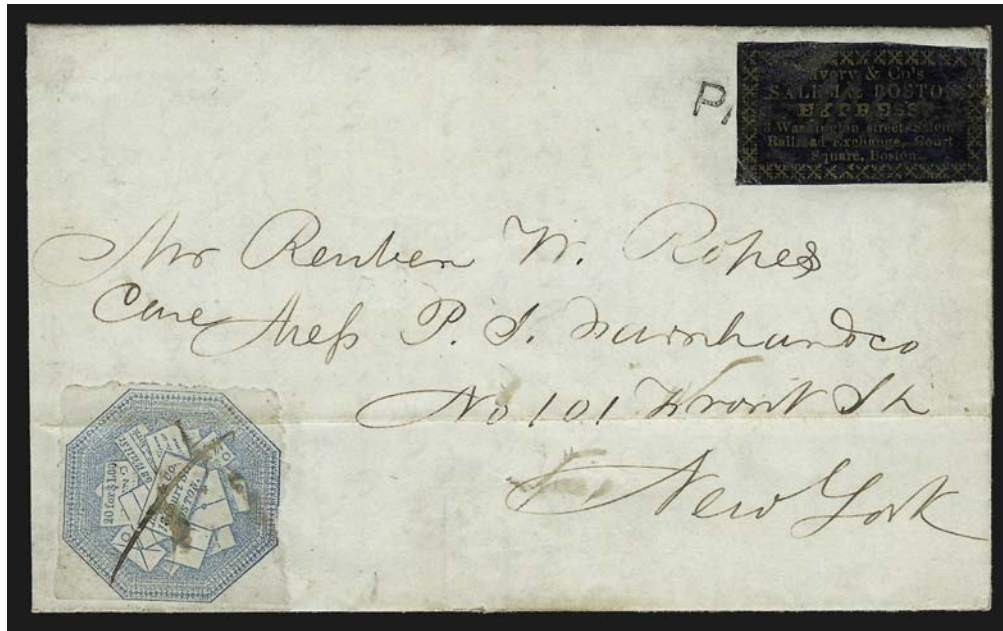 PA
Avery & Co's
SALEM & BOSTON
EXPRESS
3 Washington street, Salem
Railroad Exchange, Court
Square, Boston.
Mr Reuben W. Ropes
Care Mess P. I. & co
No 101 Front St
New York
20 for $1.00
& Co.
Court St.
BOSTON.